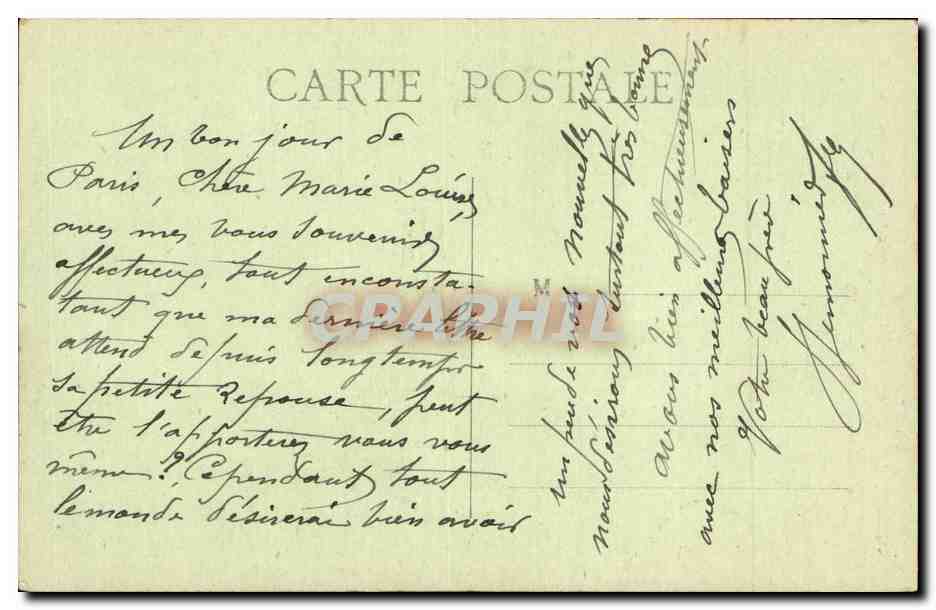 CARTE POSTALE
Un bon jour de
Paris, Chère Marie Louise,
aves mes vous souvenirs
affectueux, tout enconsta-
tant que ma dernière lettre
attend depuis longtemps
sa petite Reponse, peut
être l'apporterez vous vous
même?, Cependant tout
le monde désirerai bien avoir
un peu de vos nouvelles que
nous désirons surtout très bonne
a vous bien affectueusement
avec nos meilleurs baisers
Votre beau frère
M
GRAPHIL